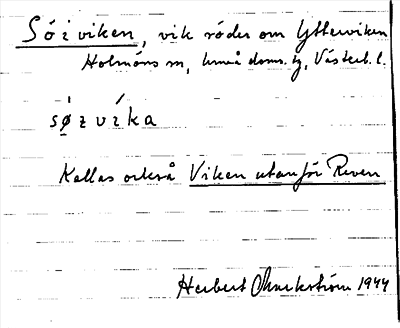 Söiviken, vik söder om Ytterviken
Holmöns sn, Umeå doms. tg, Västerb. l.
søzvíka
Kallas också Viken utanför Reven
Herbert Markström 1944